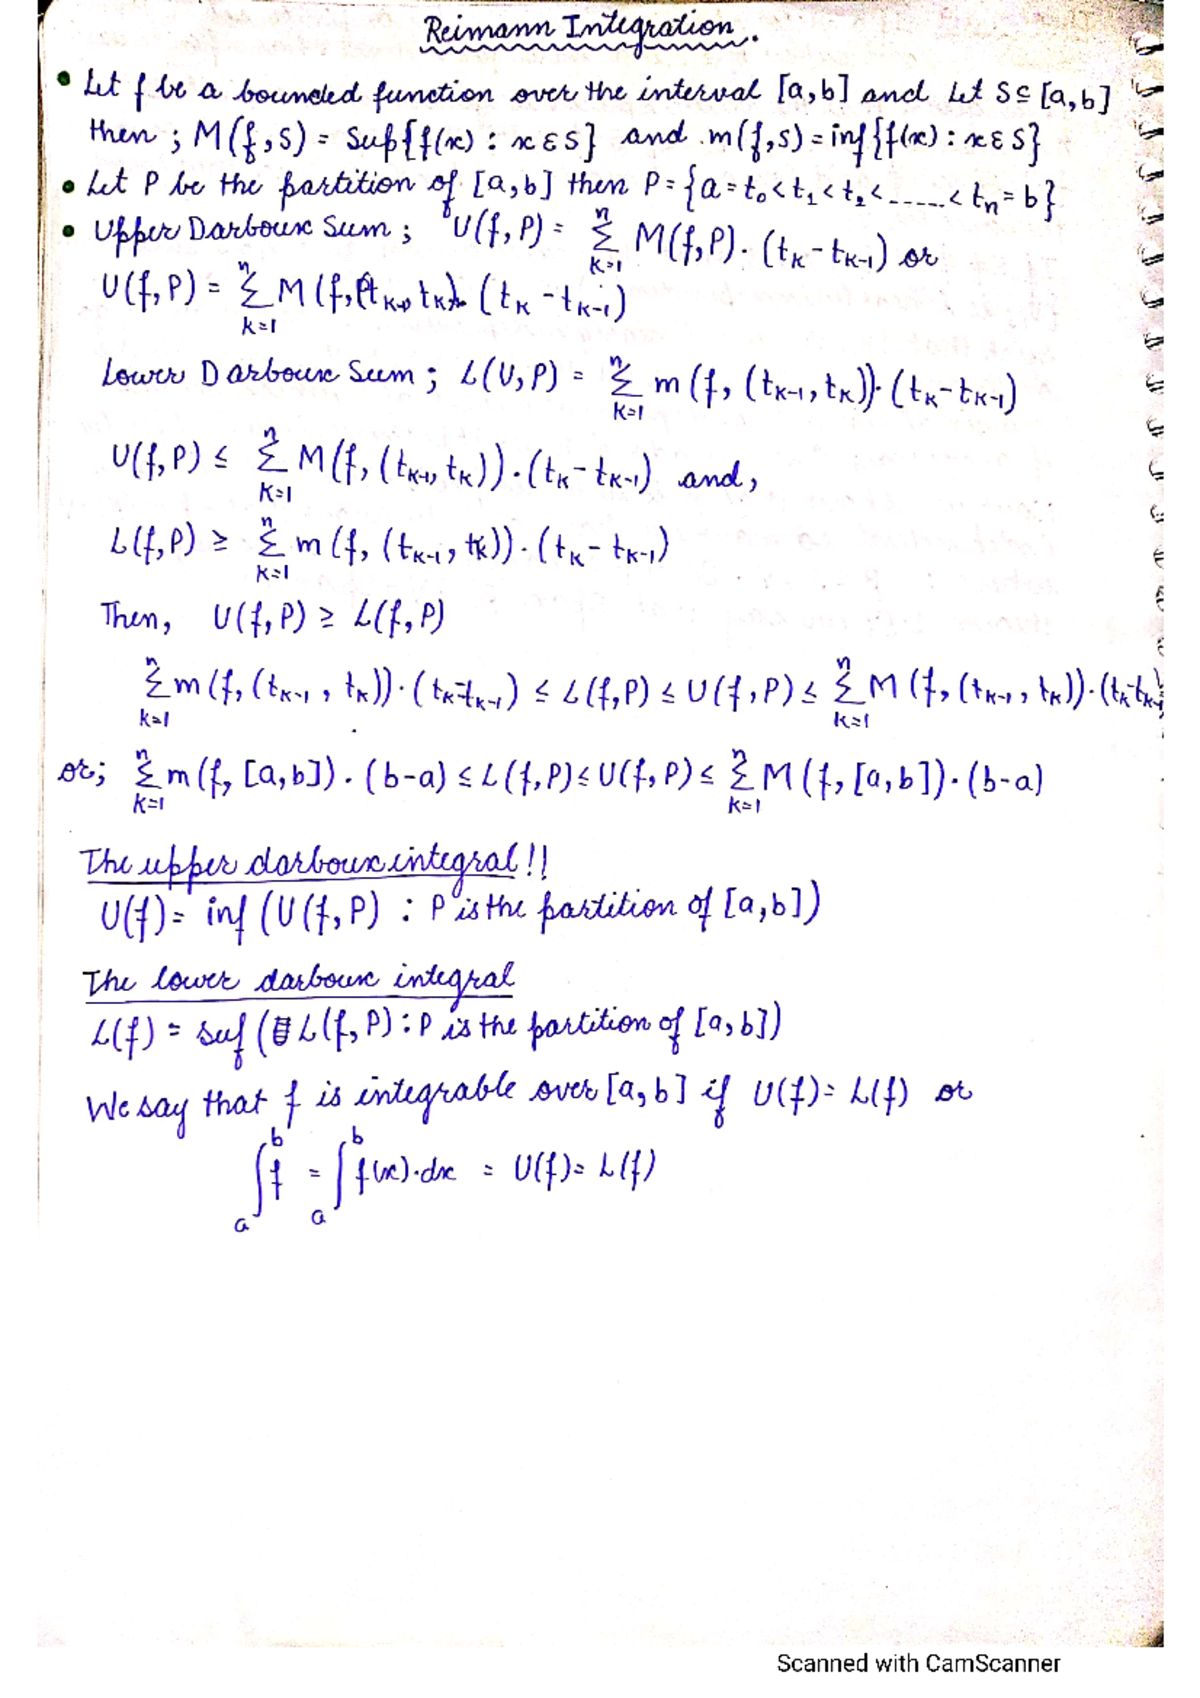 Reimann Integration.
• Let f be a bounded function over the interval [a,b] and Let S⊆[a,b]
then ; M(f,S) = Sup{f(x) : x ε S} and m(f,s) = inf{f(x) : x ε S}
• Let P be the partition of [a,b] then P = {a = t₀ < t₁ < t₂ < ...... < tₙ = b}
• Upper Darboux Sum ; U(f,P) = Σ_{k=1}^{n} M(f,P). (t_k - t_{k-1}) or
U(f,P) = Σ_{k=1}^{n} M(f,(t_{k-1}, t_k)). (t_k - t_{k-1})
Lower Darboux Sum ; L(U,P) = Σ_{k=1}^{n} m(f, (t_{k-1}, t_k)). (t_k - t_{k-1})
U(f,P) ≤ Σ_{k=1}^{n} M(f, (t_{k-1}, t_k)).(t_k - t_{k-1}) and,
L(f,P) ≥ Σ_{k=1}^{n} m(f, (t_{k-1}, t_k)).(t_k - t_{k-1})
Then, U(f,P) ≥ L(f,P)
Σ_{k=1}^{n} m(f, (t_{k-1}, t_k)).(t_k - t_{k-1}) ≤ L(f,P) ≤ U(f,P) ≤ Σ_{k=1}^{n} M(f, (t_{k-1}, t_k)).(t_k - t_{k-1})
or; Σ_{k=1}^{n} m(f, [a,b]). (b-a) ≤ L(f,P) ≤ U(f,P) ≤ Σ_{k=1}^{n} M(f, [a,b]).(b-a)
The upper darboux integral!!
U(f) = inf (U(f,P) : P is the partition of [a,b])
The lower darboux integral
L(f) = suf (L(f,P) : P is the partition of [a,b])
We say that f is integrable over [a,b] if U(f) = L(f) or
∫_a^b f = ∫_a^b f(x).dx = U(f) = L(f)
Scanned with CamScanner